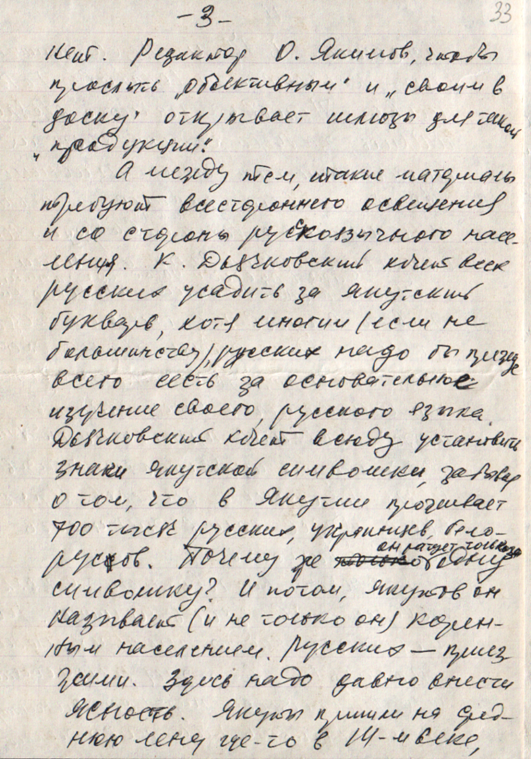 -3-
33
нент. Редактор О. Якимов, чтобы
прослыть „объективным" и „своим в
доску" открывает шлюзы для такой
„продукции".
А между тем, такие материалы
требуют всестороннего освещения
и со стороны русскоязычного насе-
ления. К. Дьячковский хочет всех
русских усадить за якутский
букварь, хотя многим (если не
большинству) русских надо бы прежде
всего сесть за основательное
изучение своего, русского языка.
Дьячковский хочет всюду установить
знаки якутской символики, забывая
о том, что в Якутии проживает
700 тысяч русских, украинцев, бело-
русов. Почему же он ратует только за одну
символику? И потом, якутов он
называет (и не только он) корен-
ным населением. Русских — приез-
жими. Здесь надо давно внести
ясность. Якуты пришли на сред-
нюю Лену где-то в 14-м веке,